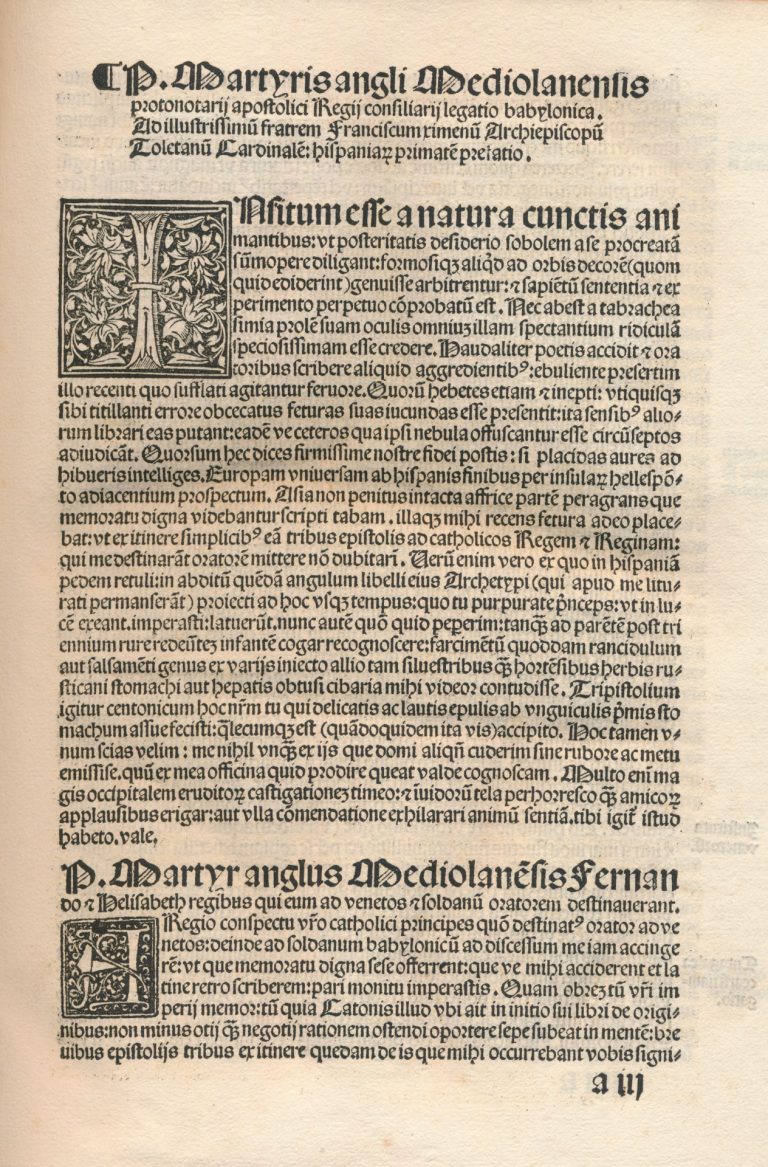 ¶P. Martyris angli Mediolanensis
protonotarij apostolici Regij consiliarij legatio babylonica.
Ad illustrissimũ fratrem Franciscum ximenũ Archiepiscopũ
Toletanũ Cardinalẽ: hispaniaꝝ primatẽ prefatio.
INsitum esse a natura cunctis ani
mantibus: vt posteritatis desiderio sobolem a se procreatã
sũmopere diligant: formosiqꝫ aliqd ad orbis decorẽ (quom
quid ediderint) genuisse arbitrentur: ⁊ sapiẽtũ sententia ⁊ ex
perimento perpetuo cõprobatũ est. Nec abest a tabrachea
simia prolẽ suam oculis omniuꝫ illam spectantium ridiculã
speciosissimam esse credere. Haud aliter poetis accidit ⁊ ora
toribus scribere aliquid aggredientibꝰ: ebuliente presertim
illo recenti quo sufflati agitantur feruore. Quorũ hebetes etiam ⁊ inepti: vtiquisqꝫ
sibi titillanti errore obcecatus feturas suas iucundas esse presentit: ita sensibꝰ alio-
rum librari eas putant: eadẽ ve ceteros qua ipsi nebula offuscantur esse circũseptos
adiudicãt. Quorsum hec dices firmissime nostre fidei postis: si placidas aures ad
hibueris intelliges. Europam vniversam ab hispanis finibus per insulaꝝ hellespõ-
to adiacentium prospectum. Asia non penitus intacta affrice partẽ peragrans que
memoratu digna videbantur scripti tabam. illaqꝫ mihi recens fetura adeo place-
bat: vt ex itinere simplicibꝰ eã tribus epistolis ad catholicos Regem ⁊ Reginam:
qui me destinarãt oratorẽ mittere nõ dubitari. Uerũ enim vero ex quo in hispaniã
pedem retuli: in abditũ quẽdã angulum libelli eius Archetypi (qui apud me litu-
rati permanserãt) proiecti ad hoc vsqꝫ tempus: quo tu purpurate pñceps: vt in lu-
cẽ exeant. imperasti: latuerũt. nunc autẽ quõ quid peperim: tanqꝫ ad parẽtẽ post tri
ennium rure redeũteꝫ infantẽ cogar recognoscere: farcimẽtũ quoddam rancidulum
aut salsamẽti genus ex varijs iniecto allio tam silvestribus qꝫ hortẽsibus herbis ru-
sticani stomachi aut hepatis obtusi cibaria mihi videor contudisse. Tripistolium
igitur centonicum hoc nr̃m tu qui delicatis ac lautis epulis ab vnguiculis p̃mis sto
machum assuefecisti: q̃lecumqꝫ est (quãdoquidem ita vis) accipito. Hoc tamen v-
num scias velim: me nihil vnqꝫ ex ijs que domi aliqñ cuderim sine rubore ac metu
emisisse. quũ ex mea officina quid prodire queat valde cognoscam. Multo eni̅ ma
gis occipitalem eruditoꝝ castigationeꝫ timeo: ⁊ ĩuidorũ tela perhorresco qꝫ amicoꝝ
applausibus erigar: aut vlla cõmendatione exhilarari animũ sentiã. tibi igit̃ istud
habeto. vale.
P. Martyr anglus Mediolanẽsis Fernan
do ⁊ Helisabeth regibus qui eum ad venetos ⁊ soldanũ oratorem destinauerant.
A Regio conspectu vr̃o catholici principes quõ destinatꝰ orator ad ve
netos: deinde ad soldanum babylonicũ ad discessum me iam accinge
rẽ: vt que memoratu digna sese offerrent: que ve mihi acciderent et la
tine retro scriberem: pari monitu imperastis. Quam obreꝫ tũ vr̃i im
perij memor: tũ quia Catonis illud vbi ait in initio sui libri de origi-
nibus: non minus otij qꝫ negotij rationem ostendi oportere sepe subeat in mentẽ: bre
uibus epistolijs tribus ex itinere quedam de is que mihi occurrebant vobis signi-
a iij